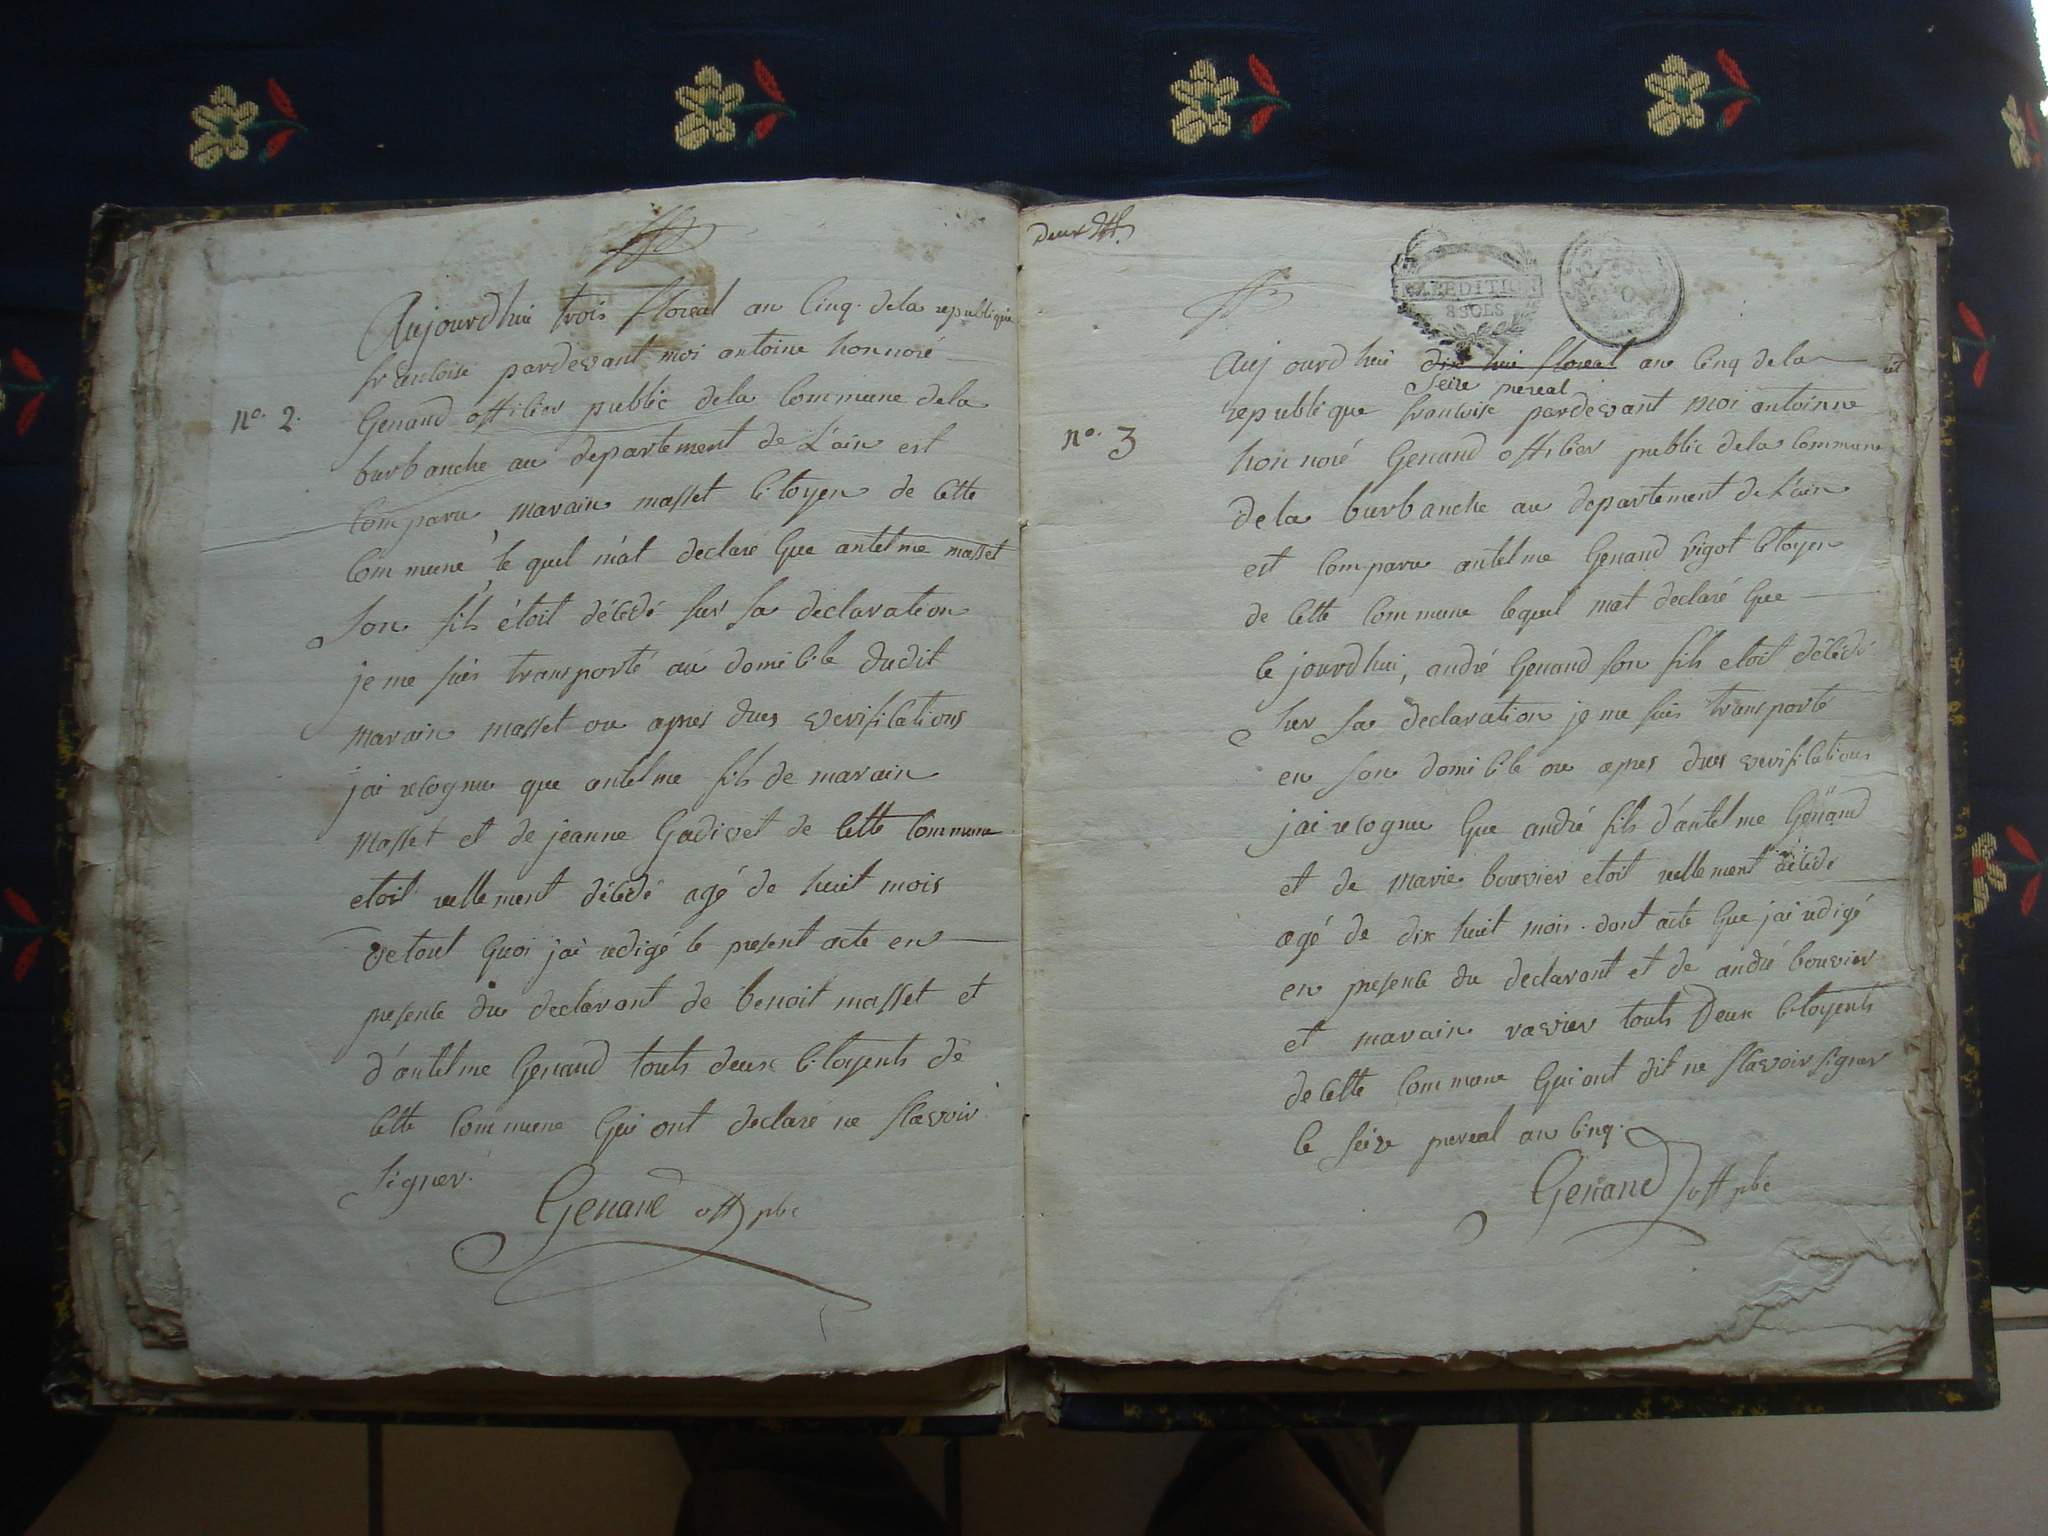 Aujourdhui trois floreal an Cinq. dela republique
francoise pardevant moi antoine honnoré
n°. 2.
Genand officier public dela Commune dela
burbanche au departement de L'ain est
Comparu marain masset Citoyen de Cette
Commune le quel m'at declaré Que antelme masset
Son fils étoit décédé sur sa declaration
je me suis transporté au domicile dudit
marain masset ou apres dues verifications
jai recognu que antelme fils de marain
masset et de jeanne Gadivet de Cette Commune
etoit reellement décédé agé de huit mois
de tout Quoi jai redigé le present acte en
presence du declarant de benoit masset et
d'antelme Genand touts deux Citoyents de
Cette Commune Qui ont declaré ne scavoir
signer.
Genand off pbc
deux
EXPEDITION
8 SOLS
Aujourdhui dix hui floreal an Cinq dela
Seize prereal
republique francoise pardevant moi antoinne
n°. 3
honnoré Genand officier public dela Commune
dela burbanche au departement de L'ain
est Comparu antelme Genand Vigot Citoyen
de Cette Commune lequel mat declaré Que
ce jourdhui, andré Genand son fils etoit décédé
sur sa declaration je me suis transporté
en son domicile ou apres dues verifications
jai recognu Que andré fils d'antelme Genand
et de marie bouvier etoit reellement décédé
agé de dix huit mois. dont acte Que jai redigé
en presence du declarant et de andré bouvier
et marain ravier touts Deux Citoyents
de Cette Commune Qui ont dit ne scavoir signer
le seize prereal an Cinq.
Genand off pbc